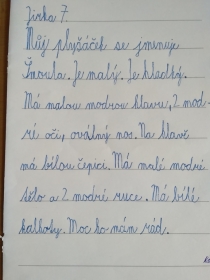 Jirka 7.
Můj plyšáček se jmenuje
Šmoula. Je malý. Je hladký.
Má malou modrou hlavu, 2 mod-
ré oči, oválný nos. Na hlavě
má bílou čepici. Má malé modré
tělo a 2 modré ruce. Má bílé
kalhoty. Moc ho mám rád.